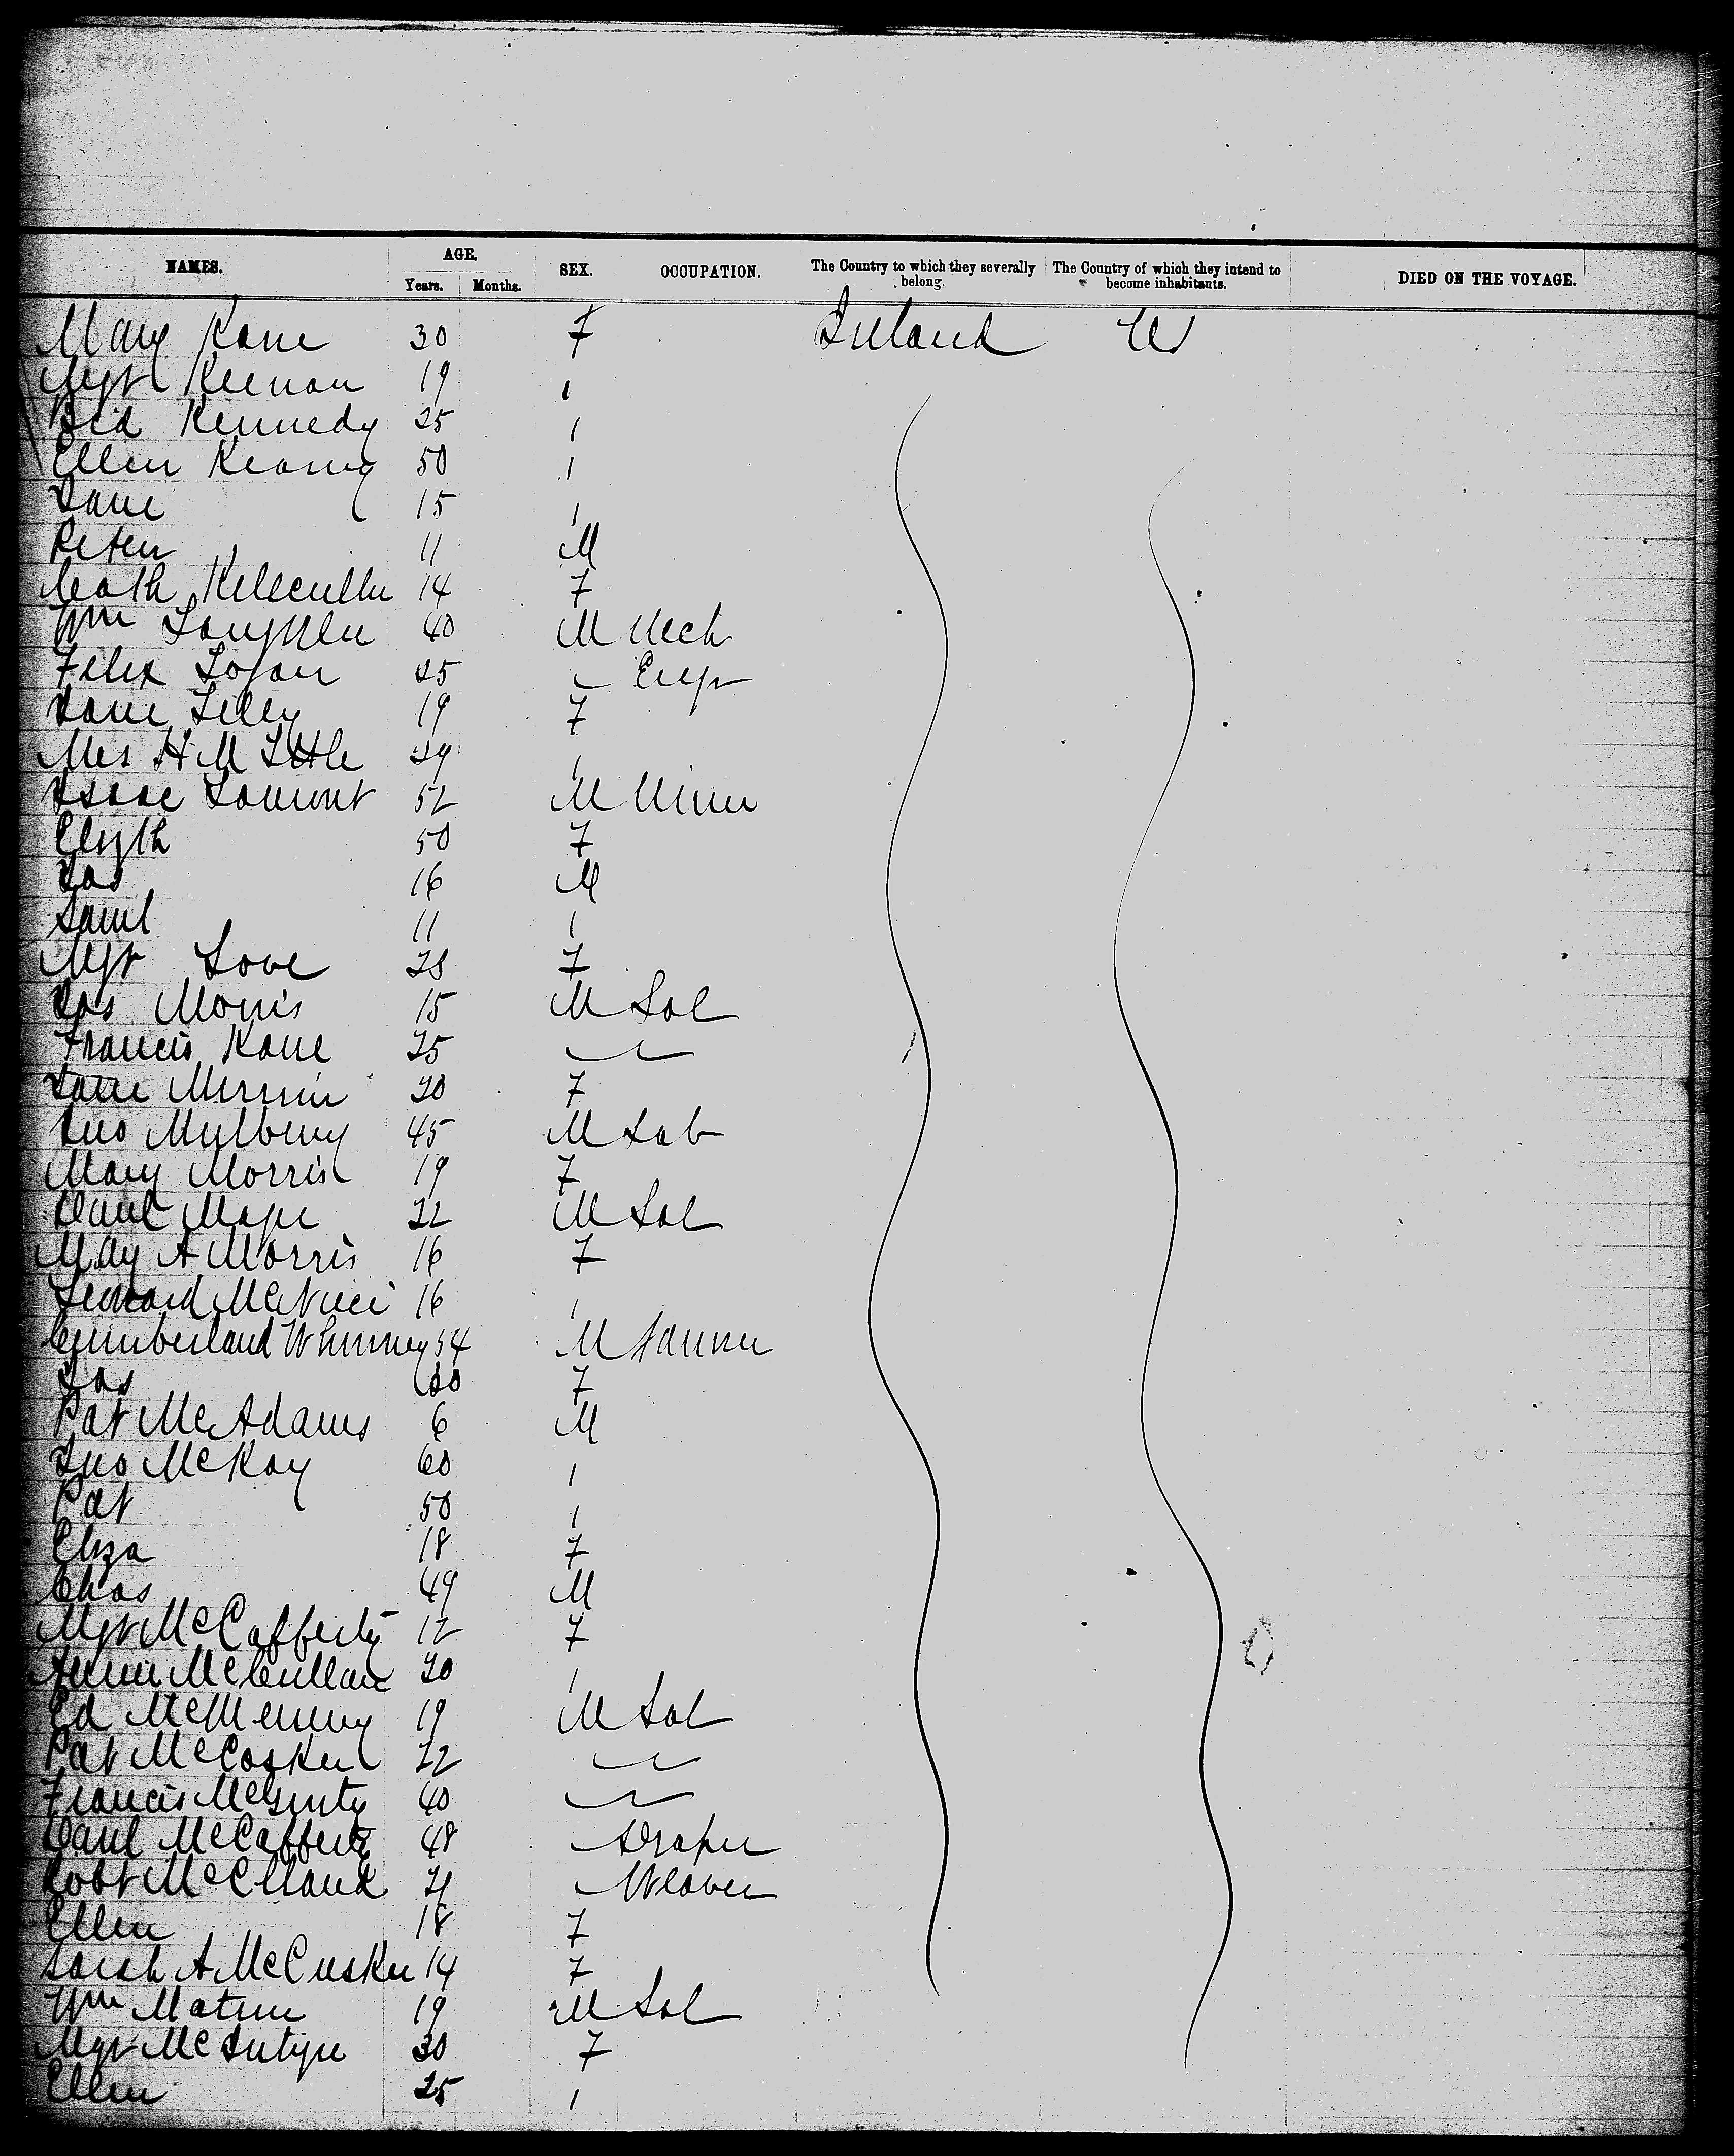 NAMES. AGE. SEX. OCCUPATION. The Country to which they severally belong. The Country of which they intend to become inhabitants. DIED ON THE VOYAGE.
Years. Months.
Mary Kane 30 F Ireland US
Mgt Keenan 19 "
Bid Kennedy 25 "
Ellen Kearney 50 "
Jane 15 "
Peter 11 M
Cath Killcullen 14 F
Wm Laughlin 40 M Mech
Felix Logan 25 " Engr
Jane Lilly 19 F
Mrs H M Little 29 "
Isaac Lamont 52 M Miner
Elizth 50 F
Jas 16 M
Saml 11 "
Mgt Love 28 F
Jas Morris 15 M Lab
Francis Kane 25 "
Jane 20 F
Jno 45 M Lab
Mary Morris 19 F
Danl 22 M Lab
Mary A Morris 16 F
16 "
Cumberland Whinney 54 M Farmer
Jas F
Pat McAdams 6 M
Jno McKay 60 "
Pat 50 "
Eliza 18 F
Chas 49 M
Mgt McCafferty 12 F
Annie McCullan 20 "
Ed McMenemy 19 M Lab
Pat McCosker 22 "
Francis McGinty 40 "
Danl McCafferty 48 " Draper
Robt McClland 21 " Weaver
Ellen 18 F
Sarah A McCusker 14 F
Wm 19 M Lab
Mgt McIntyre 30 F
Ellen 25 "